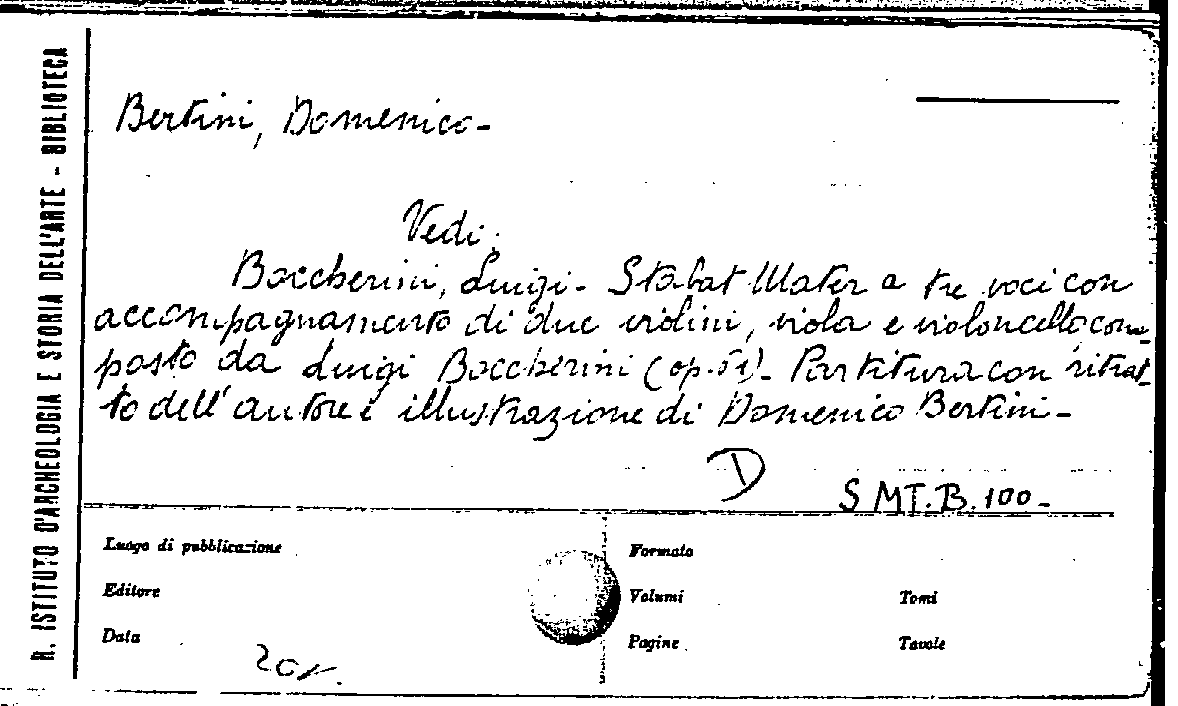 R. ISTITUTO D'ARCHEOLOGIA E STORIA DELL'ARTE - BIBLIOTECA
Bertini, Domenico-
Vedi:
Boccherini, Luigi- Stabat Mater a tre voci con
accompagnamento di due violini, viola e violoncello com-
posto da Luigi Boccherini (op. 61)- Partitura con ritrat-
to dell'autore e illustrazione di Domenico Bertini-
D
SMT.B.100-
Luogo di pubblicazione
Editore
Data
Formato
Volumi
Tomi
Pagine
Tavole